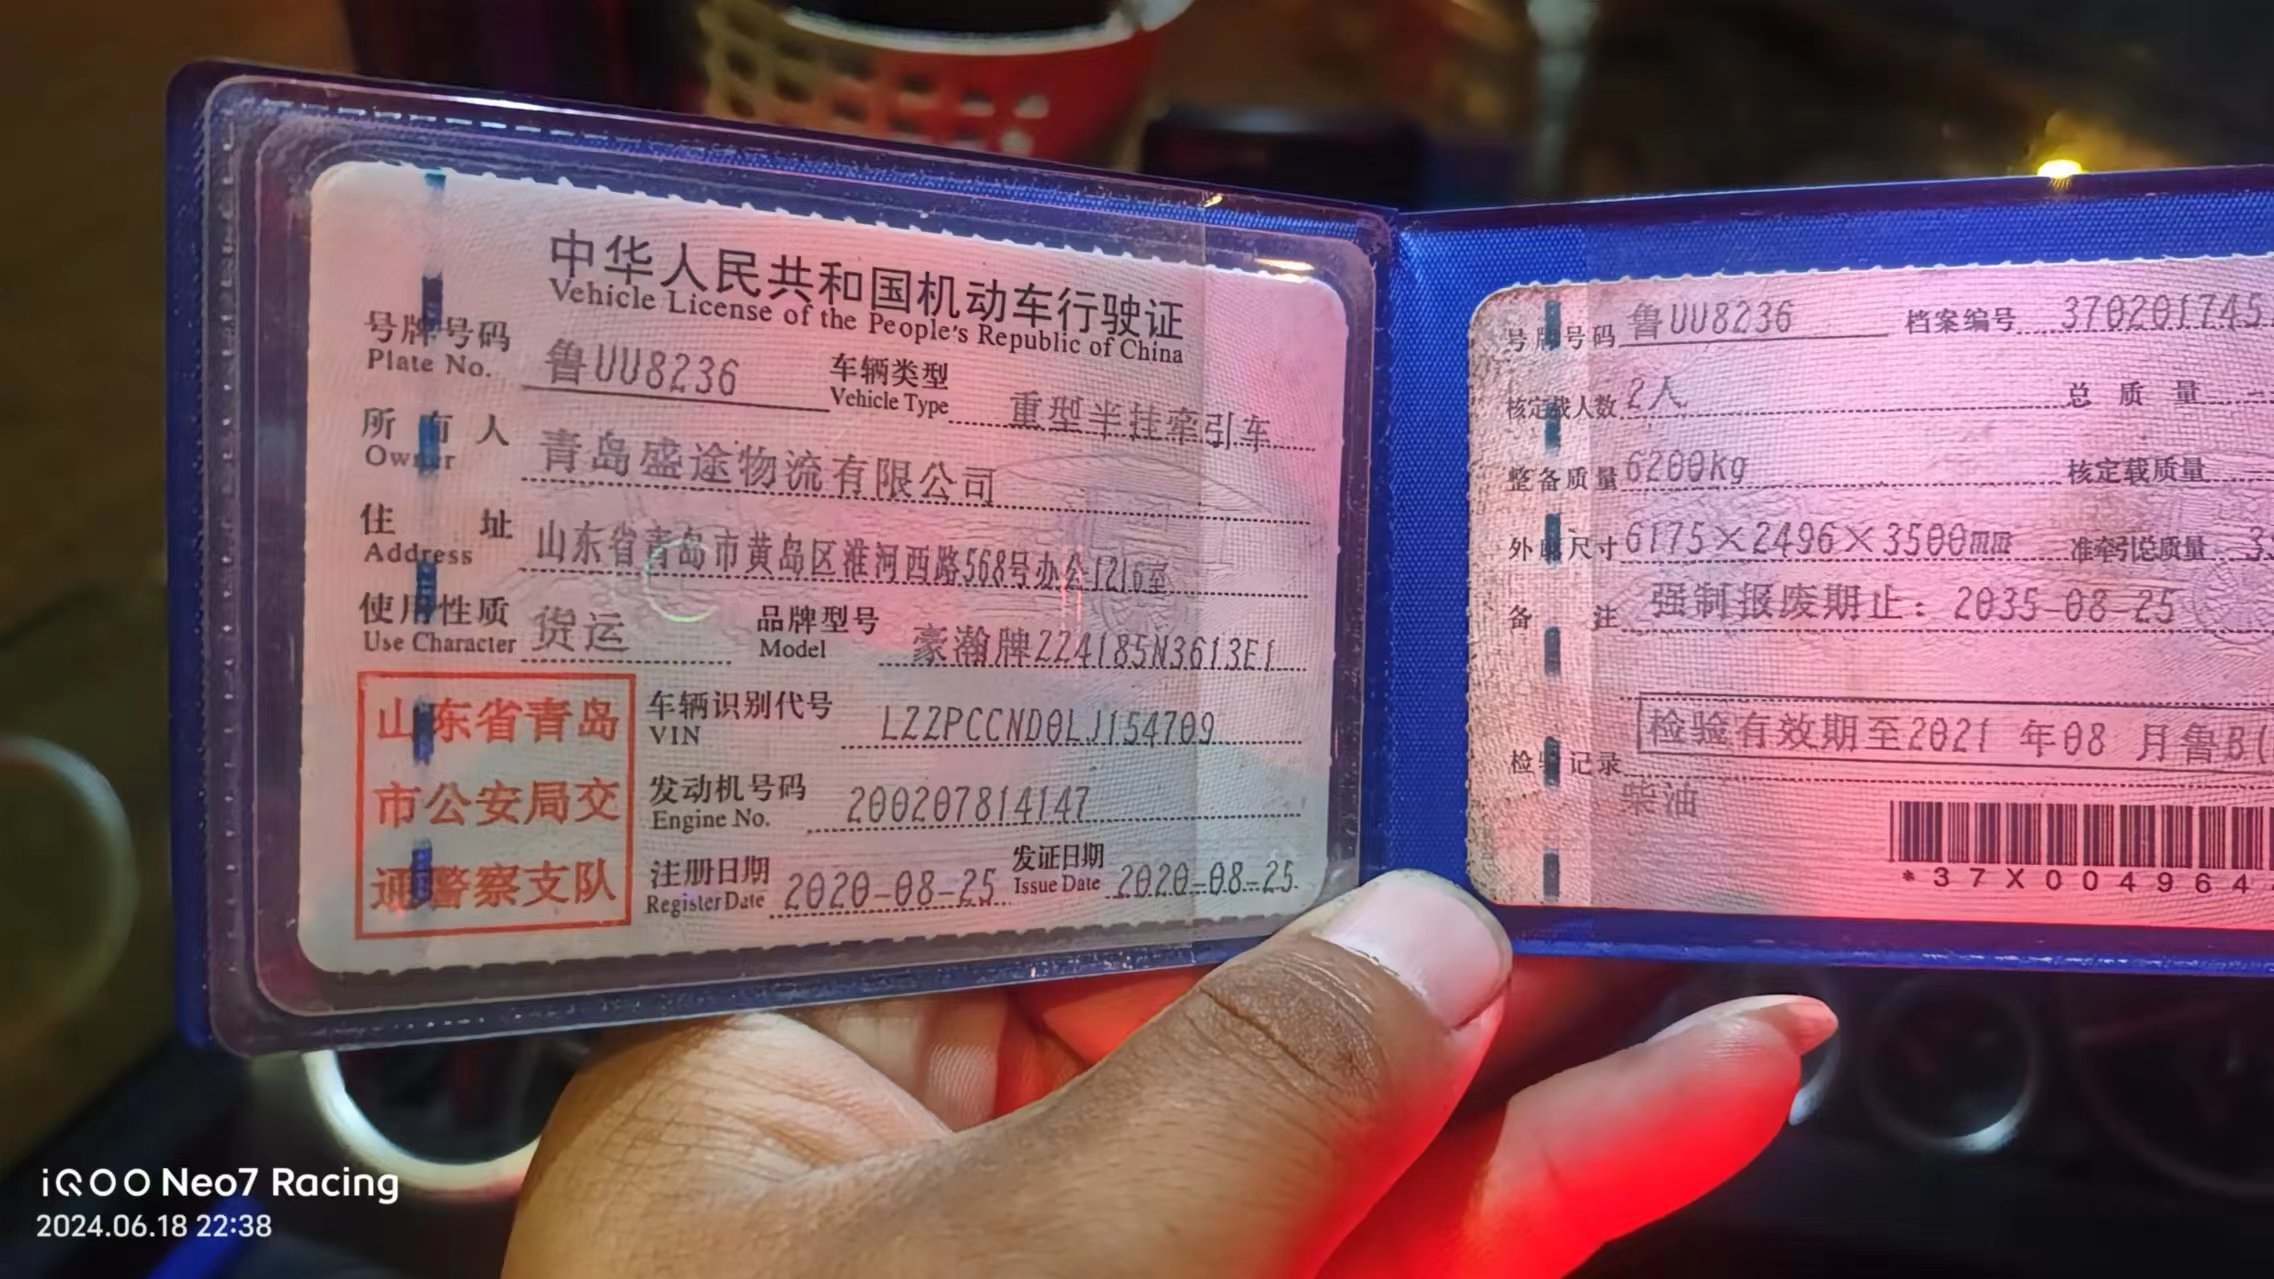 中华人民共和国机动车行驶证
Vehicle License of the People's Republic of China
号牌号码 鲁UU8236 车辆类型 重型半挂牵引车
Plate No. Vehicle Type
所有人 青岛盛途物流有限公司
Owner
住址 山东省青岛市黄岛区淮河西路568号办公1216室
Address
使用性质 货运 品牌型号 豪瀚牌ZZ4185N3613E1
Use Character Model
山东省青岛
市公安局交
通警察支队
车辆识别代号 LZZPCCND0LJ154709
VIN
发动机号码 200207814147
Engine No.
注册日期 2020-08-25 发证日期 2020-08-25
Register Date Issue Date
号牌号码 鲁UU8236 档案编号 370201745
核定载人数 2人 总质量 --
整备质量 6200kg 核定载质量 --
外廓尺寸 6175×2496×3500mm 准牵引总质量 3
备注 强制报废期止：2035-08-25
检验有效期至2021年08月鲁B(
检验记录
柴油
*37X004964
iQOO Neo7 Racing
2024.06.18 22:38